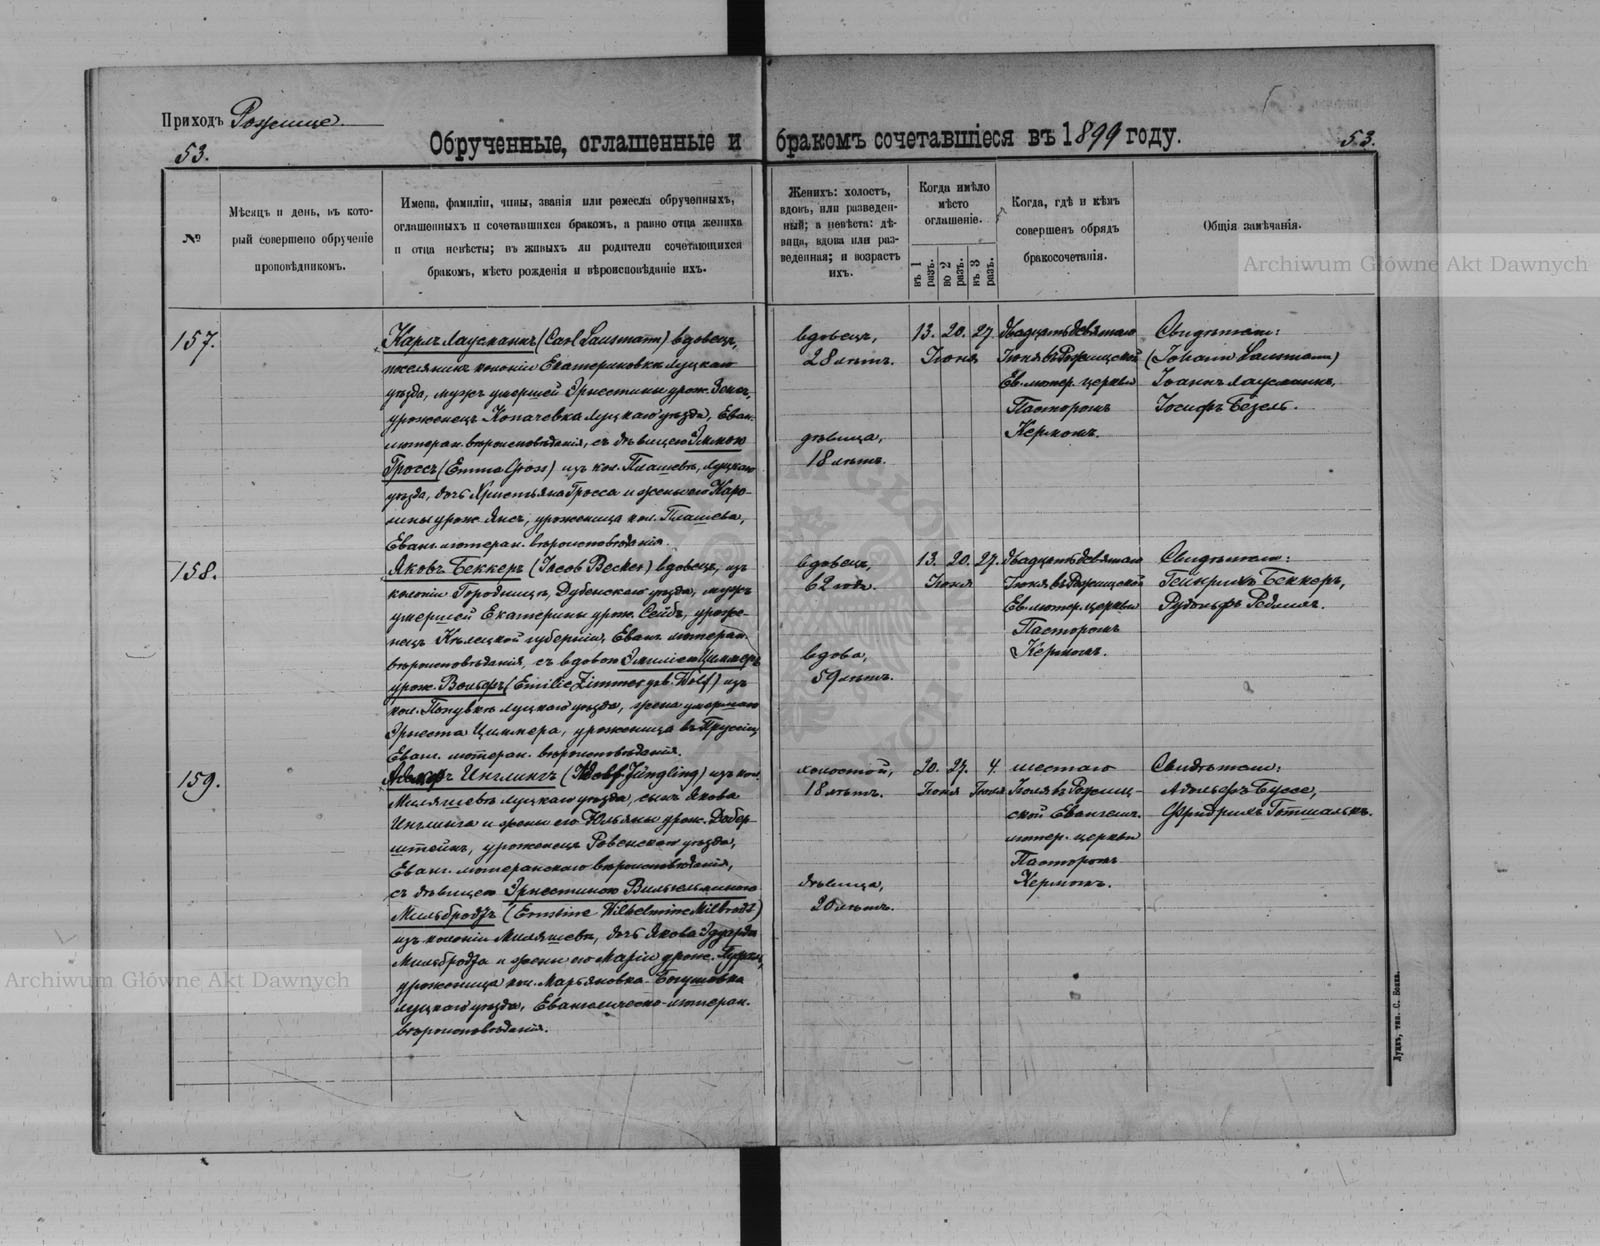 Приходъ Рожище.
53.
Обрученные, оглашенные и бракомъ сочетавшіеся въ 1899 году.
53.
№
Мѣсяцъ и день, въ кото-
рый совершено обрученіе
проповѣдникомъ.
Имена, фамиліи, чины, званія или ремесла обрученныхъ,
оглашенныхъ и сочетавшихся бракомъ, а равно отца жениха
и отца невѣсты; въ живыхъ ли родители сочетающихся
бракомъ, мѣсто рожденія и вѣроисповѣданіе ихъ.
Женихъ: холостъ,
вдовъ, или разведен-
ный; а невѣста: дѣ-
вица, вдова или раз-
веденная; и возрастъ
ихъ.
Когда имѣло
мѣсто
оглашеніе.
въ 1 разъ.
во 2 разъ.
въ 3 разъ.
Когда, гдѣ и кѣмъ
совершенъ обрядъ
бракосочетанія.
Общія замѣчанія.
157.
Карлъ Лаусманъ (Carl Lausmann) вдовецъ,
поселянинъ колоніи Екатериновки Луцкаго
уѣзда, мужъ умершей Эрнестины урож.
уроженецъ Копачевка Луцкаго уѣзда, Еван.
лютеран. вѣроисповѣданія, съ дѣвицею Эммою
Гроссъ (Emma Gross) изъ кол. Плашевъ, Луцкаго
уѣзда, дочь Христьяна Гросса и жены его Каро-
лины урож. Янсъ, уроженица кол. Плашева,
Еванг. лютеран. вѣроисповѣданія.
вдовецъ,
28 лѣтъ.
дѣвица,
18 лѣтъ.
13. 20. 27.
Іюня
двадцать девятаго
Іюня въ Рожищской
Ев. лютер. церкви
Пасторомъ
Кермомъ.
Свидѣтели:
(Johann Lausmann)
Іоаннъ Лаусманнъ,
Іосифъ Безель.
158.
Яковъ Беккеръ (Jacob Becker) вдовецъ, изъ
колоніи Городница, Дубенскаго уѣзда, мужъ
умершей Екатерины урож. Сейбъ, уроже-
нецъ Кѣлецкой губерніи, Еванг. лютеран.
вѣроисповѣданія, съ вдовою Эмиліею Циммеръ
урож. Вольфъ (Emilie Zimmer geb. Wolf) изъ
кол. Луцкаго уѣзда, жена умершаго
Эрнеста Циммера, уроженица въ Пруссіи,
Еванг. лютеран. вѣроисповѣданія.
вдовецъ,
62 года.
вдова,
59 лѣтъ.
13. 20. 27.
Іюня
двадцать девятаго
Іюня въ Рожищской
Ев. лютер. церкви
Пасторомъ
Кермомъ.
Свидѣтели:
Гейнрихъ Беккеръ,
Рудольфъ
159.
Инглингъ (Adolf Jüngling) изъ кол.
Миляшевъ Луцкаго уѣзда, сынъ Якова
Инглинга и жены его Юльяны урож. Добер-
штейнъ, уроженецъ Ровенскаго уѣзда,
Еванг. лютеранскаго вѣроисповѣданія,
съ дѣвицею Эрнестиною Вильгельминою
Мильбродъ (Ernstine Wilhelmine Milbrodt)
изъ колоніи Миляшевъ, дочь Якова Эдуарда
Мильбродта и жены его Маріи урож.
уроженица кол. Марьяновка-Богушовка
Луцкаго уѣзда, Евангелическо-лютеран.
вѣроисповѣданія.
холостой,
18 лѣтъ.
дѣвица,
20 лѣтъ.
20. 27. 4.
Іюня Іюля
шестаго
Іюля въ Рожищ-
ской Евангелич.
лютер. церкви
Пасторомъ
Кермомъ.
Свидѣтели:
Адольфъ Буссе,
Фридрихъ Готшалькъ.
Луцкъ, тип. С. Бокка.
Archiwum Główne Akt Dawnych
Archiwum Główne Akt Dawnych